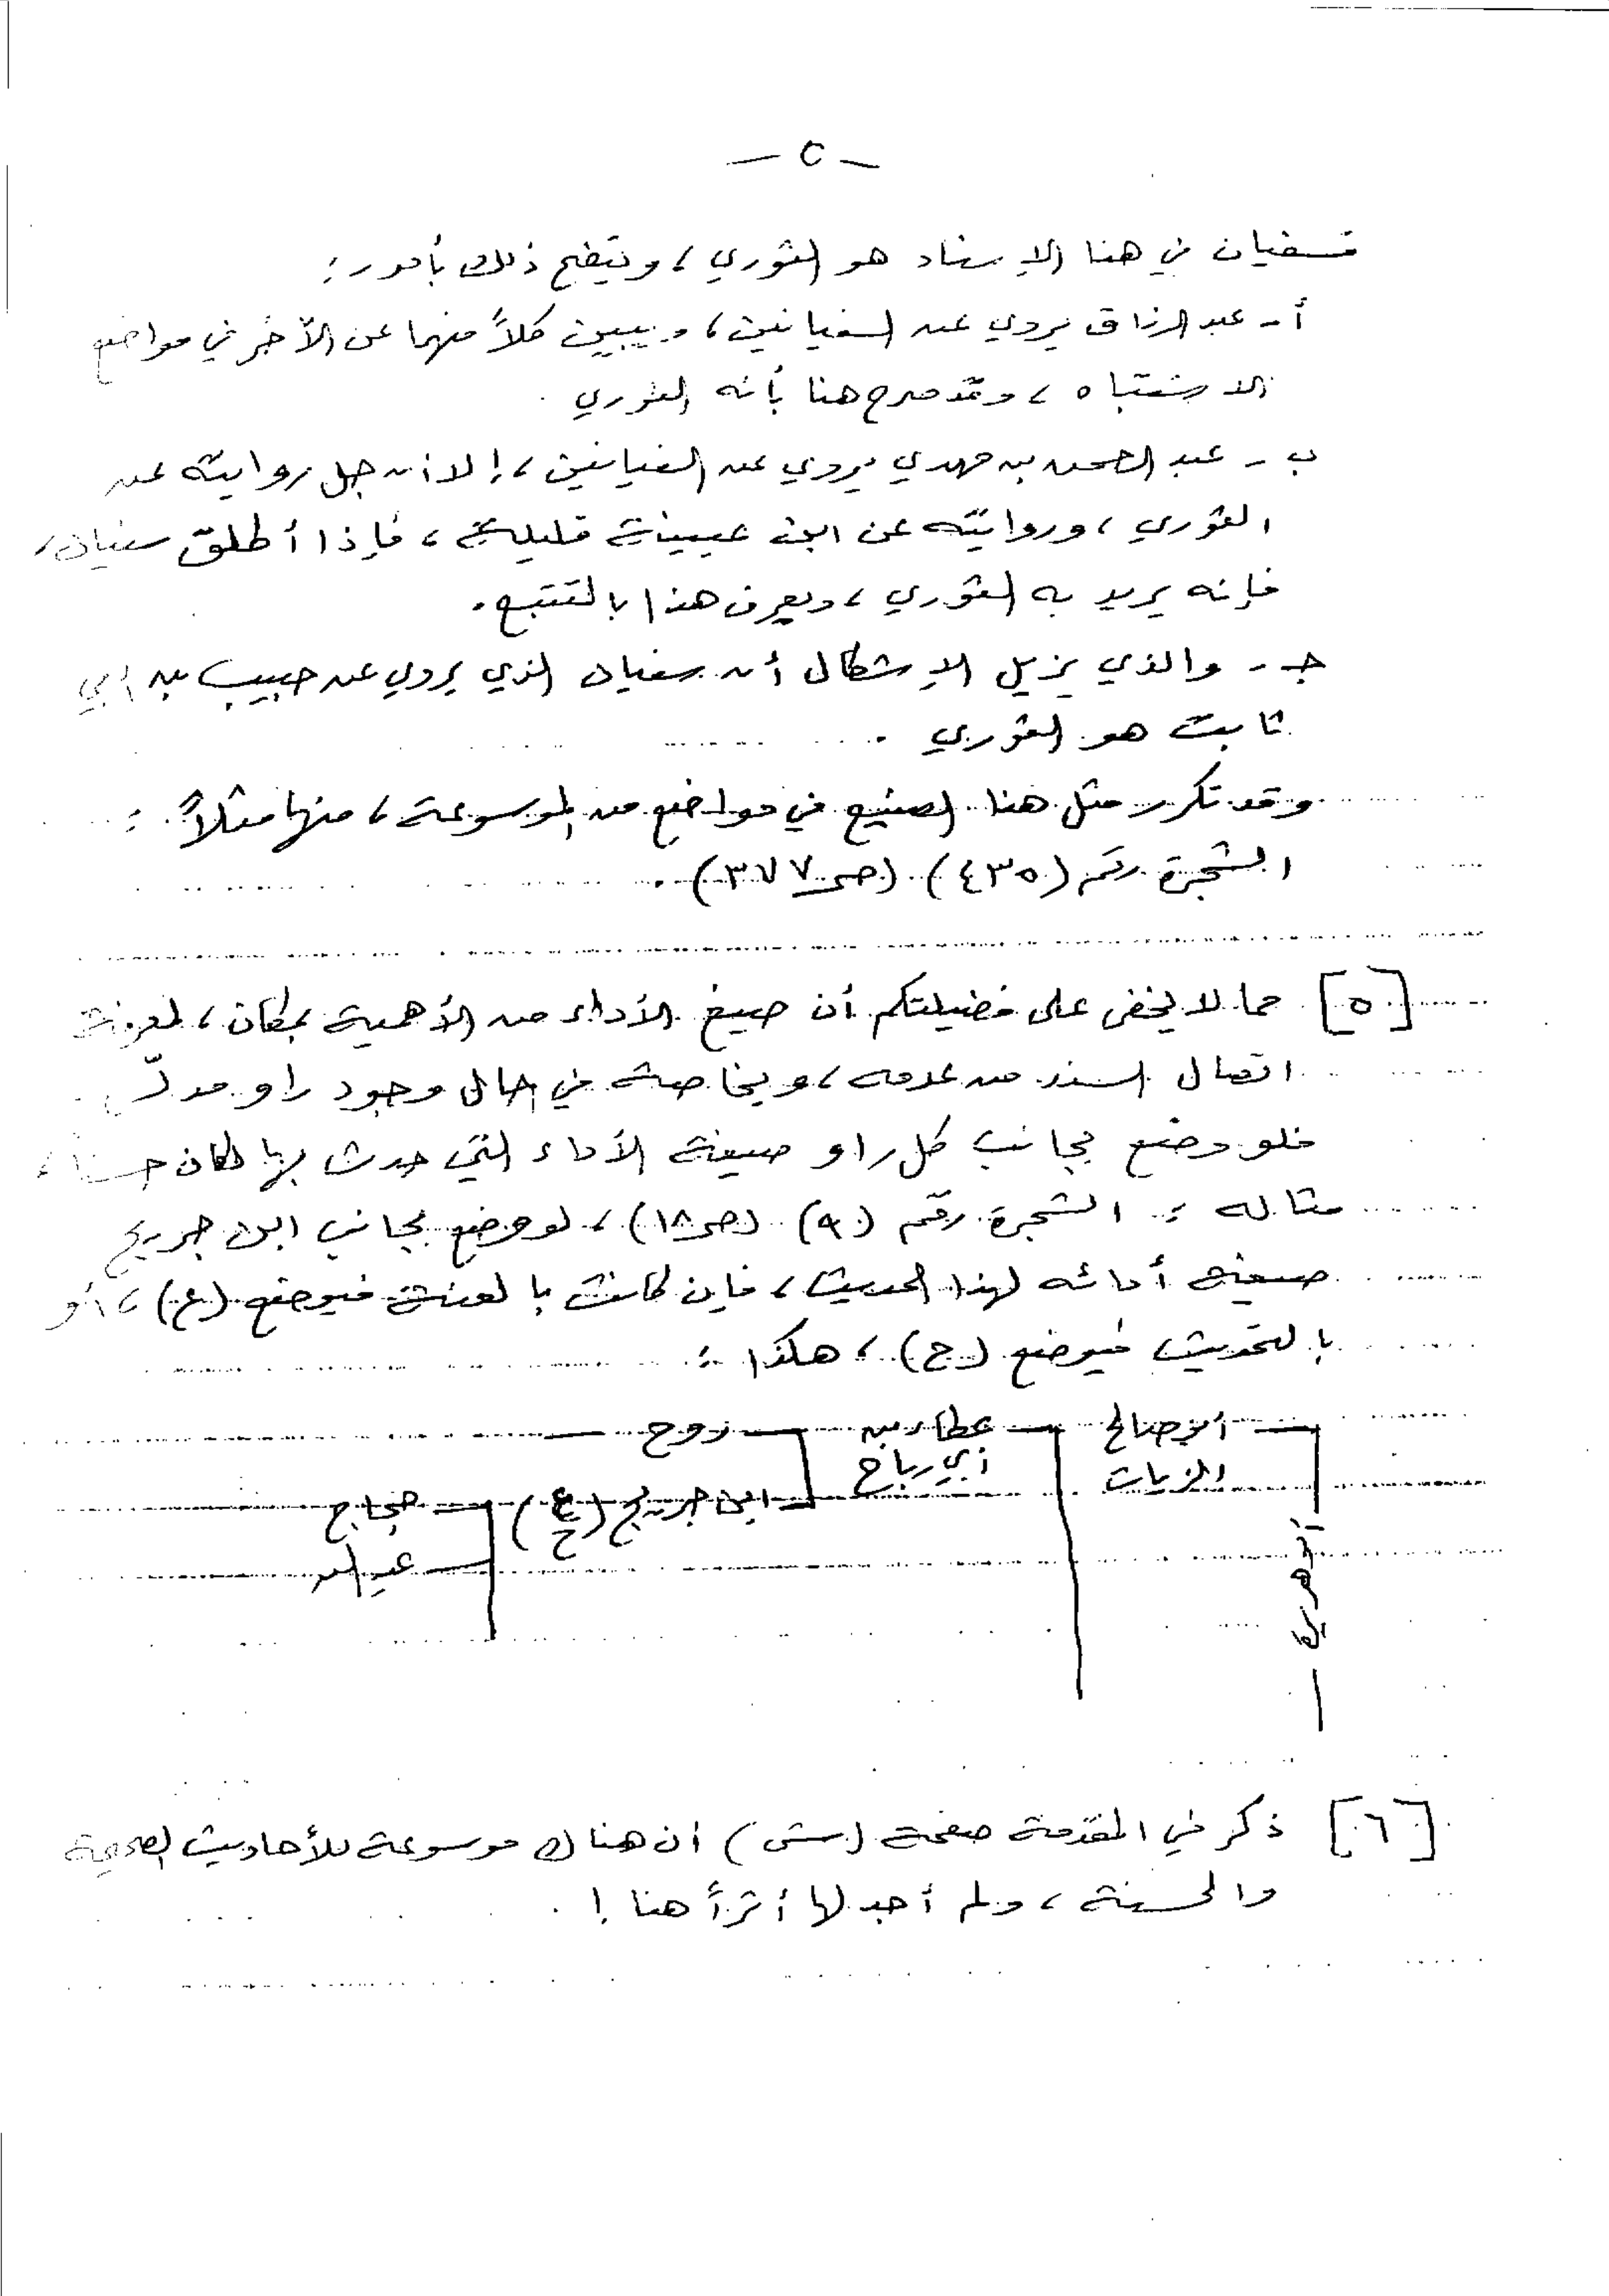 - ٢ -
فسفيان في هذا الإسناد هو الثوري، ويتضح ذلك بأمور:
أ- عبد الرزاق يروي عن السفيانين، ويبين كلاً منهما عن الآخر في مواضع
الاشتباه، وقد صرح هنا بأنه الثوري.
ب- عبد الرحمن بن مهدي يروي عن السفيانين، إلا أن جل روايته عن
الثوري، وروايته عن ابن عيينة قليلة، فإذا أطلق سفيان،
فإنه يريد به الثوري، ويعرف هذا بالتتبع.
جـ- والذي يزيل الإشكال أن سفيان الذي يروي عن حبيب بن أبي
ثابت هو الثوري.
وقد تكرر مثل هذا الصنيع في مواضع من الموسوعة، منها مثلاً:
الشجرة رقم (٤٣٥) (ص٣٧٧).
[٥] مما لا يخفى على فضيلتكم أن صيغ الأداء من الأهمية بمكان، لمعرفة
اتصال السند من عدمه، وبخاصة في حال وجود راو مدلّس
فلو وضع بجانب كل راو صيغة الأداء التي حدث بها لكان حسناً،
مثاله: الشجرة رقم (٩) (ص١٨)، لو وضع بجانب ابن جريج
صيغة أدائه لهذا الحديث، فإن كانت بالعنعنة فيوضع (ع)، أو
بالتحديث فيوضع (ح)، هكذا:
أبو صالح عطاء بن روح
الزيات أبي رباح
ابن جريج (ع ح) حجاج
عبد الله
أبو هريرة
[٦] ذكر في المقدمة صفحة (ش) أن هناك موسوعة للأحاديث الصحيحة
والحسنة، ولم أجد لها أثراً هنا!.